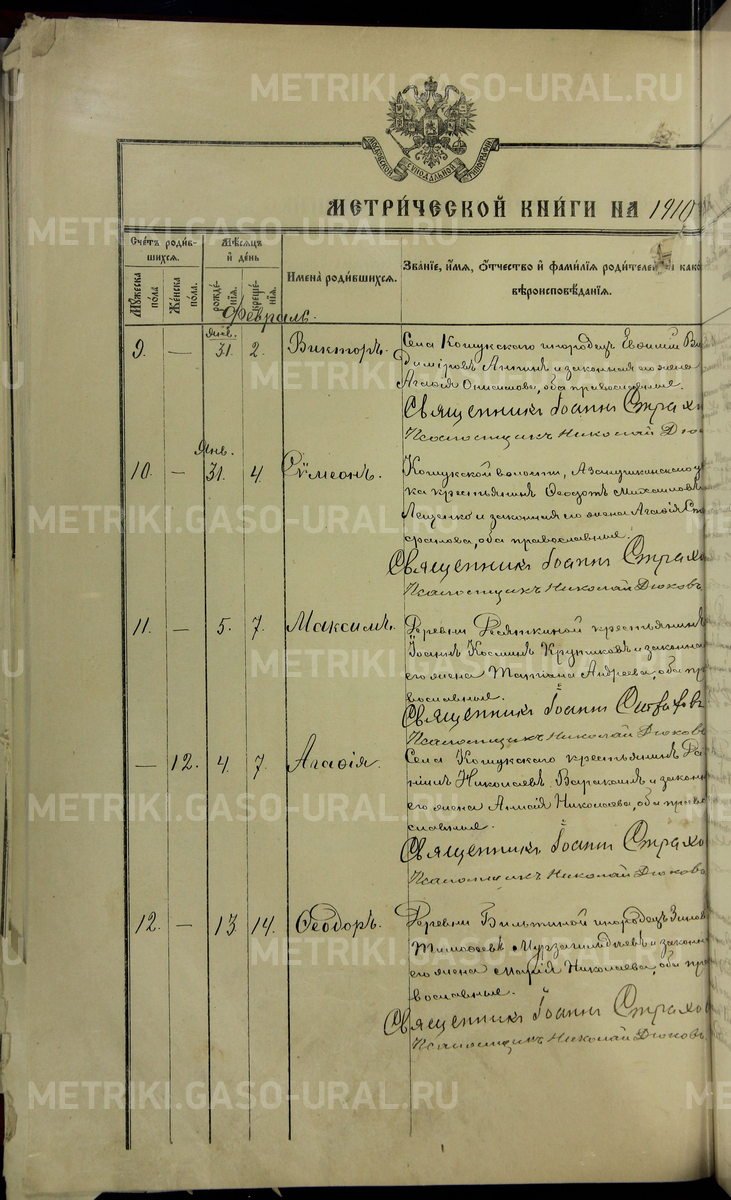 METRIKI.GASO-URAL.RU
МОСКОВСКОЙ СѴНОДАЛЬНОЙ ТИПОГРАФІИ
МЕТРИ́ЧЕСКОЙ КНИ́ГИ НА 1910
Сче́тъ роди́вшихся.
Мѣ́сяцъ и҆ де́нь
Мꙋ́жеска по́ла
Же́нска по́ла.
рожде́нія.
креще́нія.
И҆мена̀ роди́вшихся.
Зва́ніе, и҆́мя, ѻ҆́тчество и҆ фами́лія роди́телей и҆ како
вѣроисповѣ́данія.
Февраль.
9. — Янв. 31. 2. Викторъ. Села Кошукскаго инородецъ Евфимій Вла
диміровъ и законная его жена
Агафія Онисимова, оба православные.
Священникъ Іоаннъ Страхо
Псаломщикъ Николай Дюко
10. — Янв. 31. 4. Сѵмеонъ. Кошукской волости,
крестьянинъ Ѳеодотъ Михаиловъ
Лещенко и законная его жена Агафія Сте
фанова, оба православные.
Священникъ Іоаннъ Страхо
Псаломщикъ Николай Дюковъ
11. — 5. 7. Максимъ. Деревни Десяткиной крестьянинъ
Іоаннъ Косминъ Крутиковъ и законна
его жена Татіана Андреева, оба пра
вославные.
Священникъ Іоаннъ Страховъ
Псаломщикъ Николай Дюковъ
— 12. 4. 7. Агафія. Села Кошукскаго крестьянинъ Да
ніилъ Николаевъ Варакинъ и законн
его жена Анисія Николаева, оба право
славные.
Священникъ Іоаннъ Страхо
Псаломщикъ Николай Дюковъ
12. — 13. 14. Ѳеодоръ. Деревни Бильтиной инородецъ Зинов
Тимофеевъ и законн
его жена Марія Николаева, оба пра
вославные.
Священникъ Іоаннъ Страхо
Псаломщикъ Николай Дюковъ